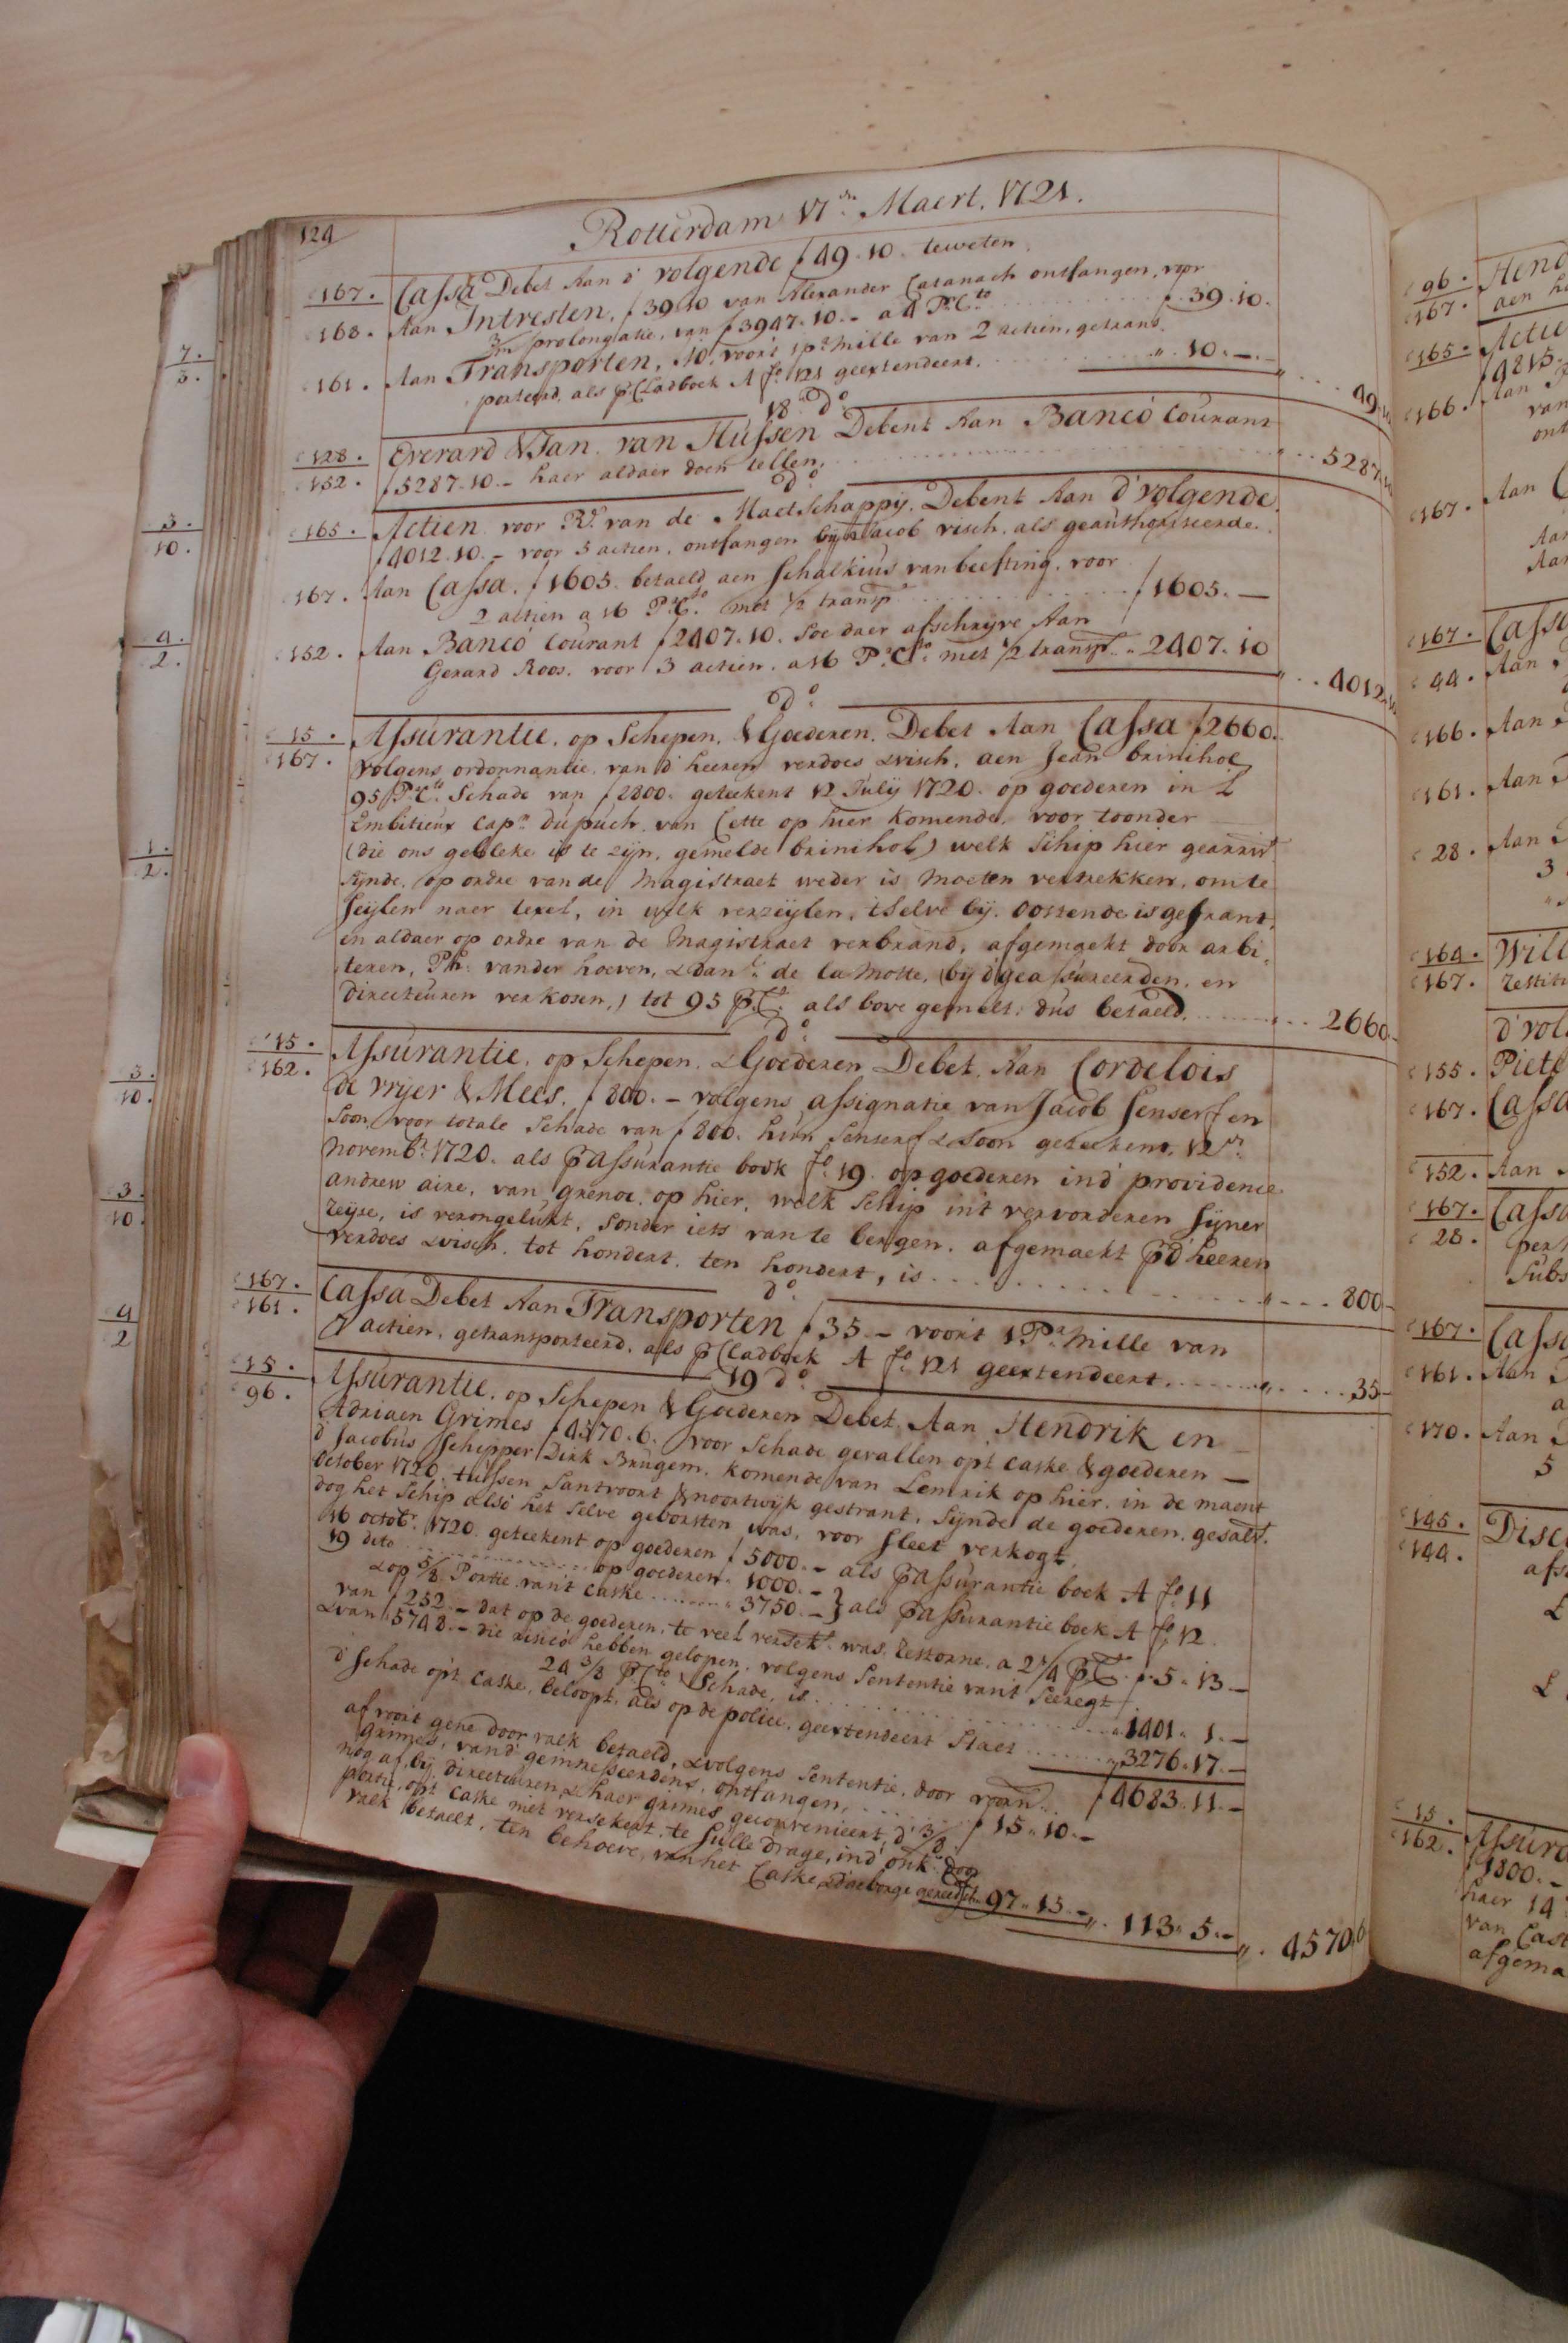 124
Rotterdam 17.en Maert. 1721.
167. Cassa Debet Aan d'volgende ƒ49.10. teweten.
168. Aan Intresten. ƒ39.10 van Alexander Catanach ontfangen, voor
3/m prolongatie, van ƒ3947.10.- a 4 P.Cto ƒ39.10.
161. Aan Transporten, 10. voor't 1 p.r mille van 2 actien, getrans
porteerd, als p. Cladboek A fo. 121 geextendeert. " 10.-.-
49.10
18 do
128. Everard & Jan van Hussen Debent Aan Banco Courant
152. ƒ5287.10.- haer aldaer doen tellen. 5287.10
do
165. Actien voor R. van de Maetschappij. Debent Aan d'volgende
ƒ4012.10.- voor 5 actien, ontfangen bij Jacob visch, als geauthoriseerde.
167. Aan Cassa. ƒ1605. betaeld aen Schalkius van beefting. voor
2 actien a 16 P.Cto. met 1/2 transp. ƒ1605.-
152. Aan Banco Courant ƒ2407.10. soe daer afschryve Aan
Gerard Roos. voor 3 actien. a 16 P.Cto. met 1/2 transp. " 2407.10
4012.10
do
15. Assurantie. op Schepen, & Goederen. Debet Aan Cassa ƒ2660.
167. volgens ordonnantie van d'heeren verdoes & visch, aen Jean brinihol
95 P.Cto. Schade van ƒ2800. geteekent 12 July 1720. op goederen in L'
Embitieux Capn. dupuch van Cette op hier komende, voor toonder
(die ons gebleke is te zijn, gemelde brinihol) welk Schip hier gearrivt
synde, op ordre van de Magistraet weder is moeten vertrekken, om te
seylen naer texel, in welk verzeylen, tselve bij Oostende is gestrant,
en aldaer op ordre van de Magistraet verbrand, afgemaekt door arbi-
teren, Ph. vander hoeven, & Danl. de la Motte, (bij d'geassureerden, en
Directeuren verkosen,) tot 95 P.Ct. als bove gemelt; dus betaeld. 2660.
do
15. Assurantie. op Schepen. & Goederen Debet. Aan Cordelois
162. de vrijer & Mees. ƒ800.- volgens assignatie van Jacob Senserf en
Soon, voor totale Schade van ƒ800. hun Senserf & Soon geteekent, 12en
novembr. 1720. als p Assurantie boek fo. 19. op goederen in d'providence
andrew aire, van grenoe, op hier, welk Schip in't vervorderen Sijner
reyse, is verongelukt, Sonder iets van te bergen. afgemaekt p d'heeren
verdoes & visch. tot hondert. ten hondert, is 800-
do
167. Cassa Debet Aan Transporten ƒ35.- voor't 1 P.r mille van
161. 7 actien, getransporteerd, als p Cladboek A fo. 121 geextendeert. 35-
19 do
15. Assurantie. op Schepen & Goederen Debet. Aan Hendrik en
96. Adriaen Grimes ƒ4570.6. voor Schade gevallen op't caske & goederen -
d'Jacobus Schipper Dirk Brugem. komende van Lemrik op hier. in de maent
October 1720. tussen Santvoort & noortwijk gestrant, Synde de goederen. gesalvt.
dog het Schip also het selve geborsten was, voor sleet verkogt.
16 octobr. 1720. geteekent op goederen ƒ5000.- als p Assurantie boek A fo. 11
19 dito op goederen. 1000.-
& op 5/8 Portie van't caske " 3750.- } als p Assurantie boek A fo. 12.
van ƒ252.- dat op de goederen, te veel versekt. was. Restorne. a 2 1/4 P.Ct. ƒ5.13-
& van ƒ5748.- die risico hebben gelopen, volgens Sententie van't Seeregt
24 3/8 P.Cto Schade, is " 1401. 1.-
d'Schade op't caske, beloopt, als op de police, geextendeert Staet " 3276.17.-
ƒ4683.11.-
af voor't gene door vaek betaeld, & volgens Sententie, door
grimes, van d'geintresseerdens, ontfangen, ƒ15.10.-
nog af, bij directeuren & haer grimes geconvenieert, d'3/8
portie, op't caske niet versekert, te sulle drage, in d'onk. door
vaek betaelt, ten behoeve, van het Caske, & d'aeborge gereedsch. " 97.15.-
" 113.5.-
" 4570.6
7.
3.
3.
10.
4.
2.
1.
2.
3.
10.
3.
10.
4
2
96. Hend
167. aen h
165. Actie
ƒ4815.
166. Aan
van
ont
167. Aan C
Aan
Aan
167. Cassa
44. Aan
166. Aan
161. Aan
28. Aan
3
164. Will
167. restit
d'vol
155. Piete
167. Cassa
152. Aan
167. Cassa
28. per
Subs
167. Cassa
161. Aan
a
170. Aan
5
145. Disc
144. afs
15. Assura
162. ƒ1800.-
haer 14
van Cast
afgema